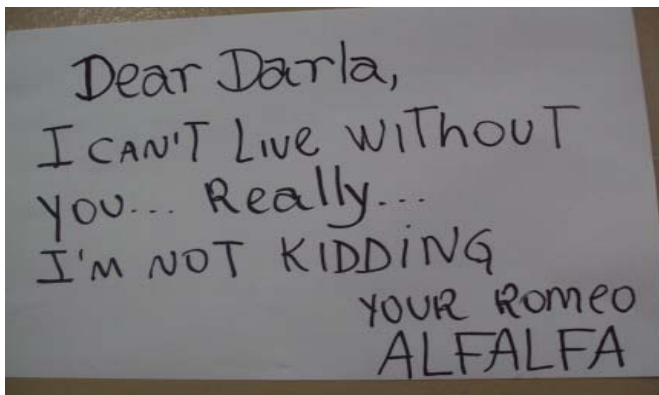 Dear Darla,
I CAN'T LIVE WIThOUT
YOU... Really...
I'M NOT KIDDING
YOUR ROMEO
ALFALFA